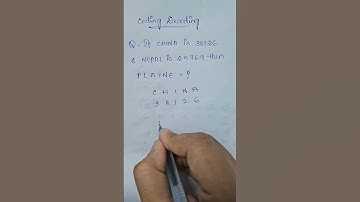 Coding Decoding
Q. If CHINA is 38126
& NEPAL is 25769 then
PLAINE = ?
C H I N A
3 8 1 2 6